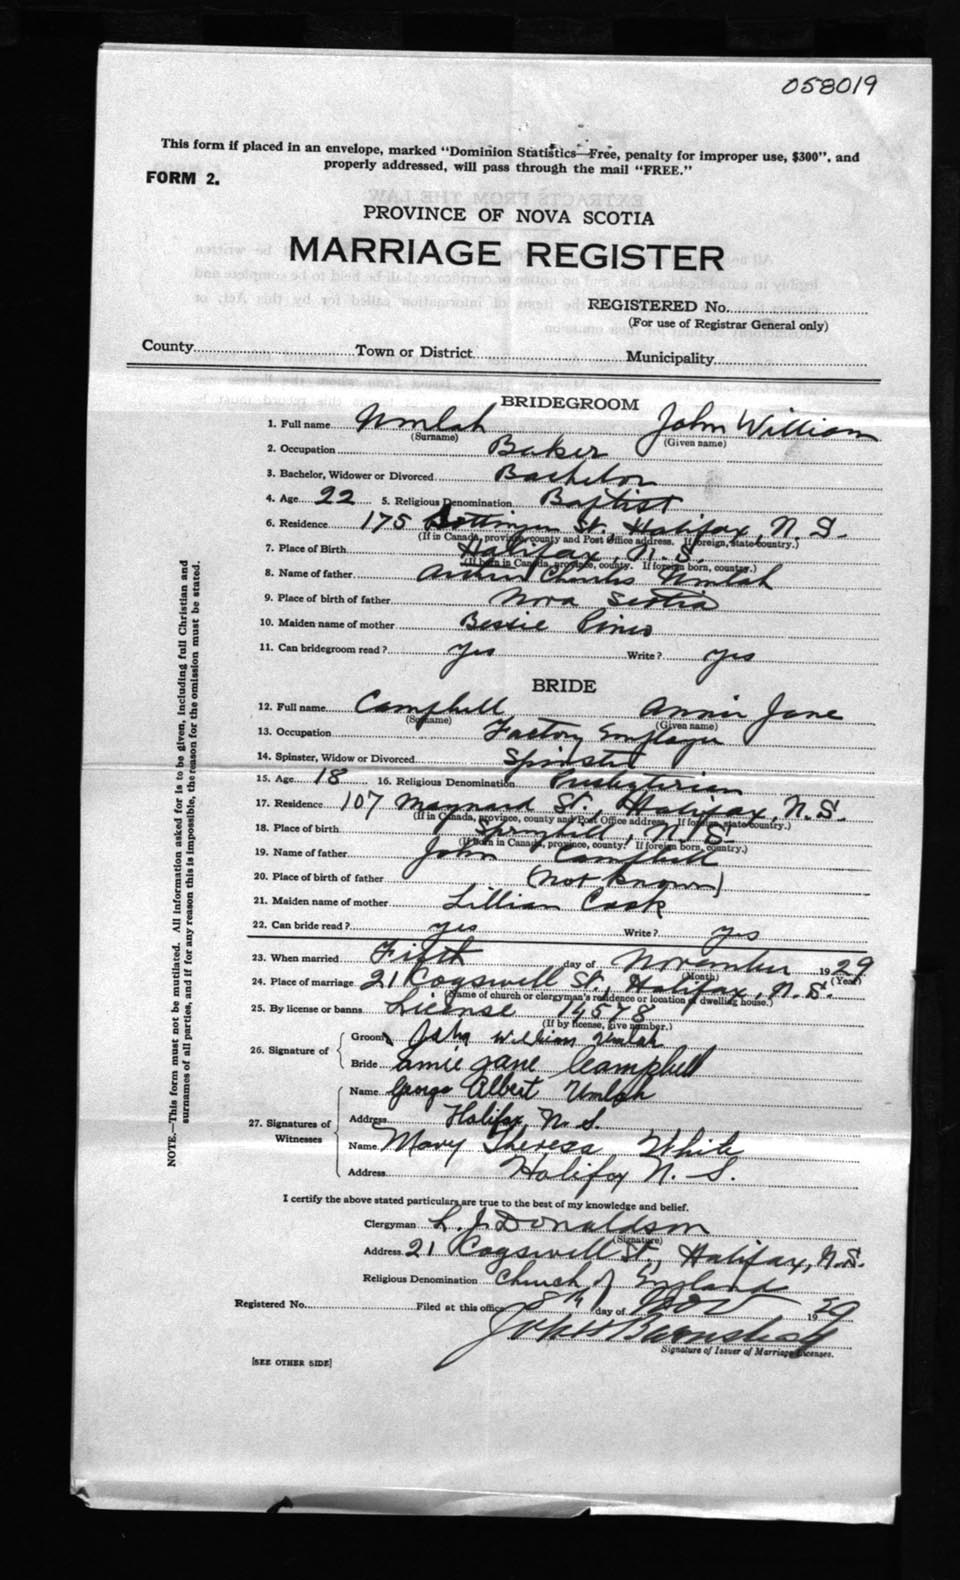 058019
This form if placed in an envelope, marked "Dominion Statistics—Free, penalty for improper use, $300", and
properly addressed, will pass through the mail "FREE."
FORM 2.
PROVINCE OF NOVA SCOTIA
MARRIAGE REGISTER
REGISTERED No.
(For use of Registrar General only)
County Town or District Municipality
BRIDEGROOM
1. Full name Umlah John William
(Surname) (Given name)
2. Occupation Baker
3. Bachelor, Widower or Divorced Bachelor
4. Age 22 5. Religious Denomination Baptist
6. Residence 175 Gottingen St. Halifax, N. S.
(If in Canada, province, county and Post Office address. If foreign, state country.)
7. Place of Birth Halifax, N. S.
(If born in Canada, province, county. If foreign born, country.)
8. Name of father Charles Umlah
9. Place of birth of father Nova Scotia
10. Maiden name of mother Bessie
11. Can bridegroom read? yes Write? yes
BRIDE
12. Full name Campbell Annie Jane
(Surname) (Given name)
13. Occupation Factory Employee
14. Spinster, Widow or Divorced Spinster
15. Age 18 16. Religious Denomination Presbyterian
17. Residence 107 Maynard St., Halifax, N. S.
(If in Canada, province, county and Post Office address. If foreign, state country.)
18. Place of birth Springhill, N. S.
(If born in Canada, province, county. If foreign born, country.)
19. Name of father John Campbell
20. Place of birth of father (not known)
21. Maiden name of mother Lillian Cook
22. Can bride read? yes Write? yes
23. When married Fifth day of November 1929
(Month) (Year)
24. Place of marriage 21 Cogswell St., Halifax, N. S.
(Name of church or clergyman's residence or location of dwelling house.)
25. By license or banns License 14578
(If by license, give number.)
26. Signature of
Groom John William Umlah
Bride Annie Jane Campbell
27. Signatures of Witnesses
Name George Albert Umlah
Address Halifax, N. S.
Name Mary Theresa White
Address Halifax N. S.
I certify the above stated particulars are true to the best of my knowledge and belief.
Clergyman L. J. Donaldson
(Signature)
Address 21 Cogswell St., Halifax, N. S.
Religious Denomination Church of England
Registered No. Filed at this office 8th day of Nov 1929
Signature of Issuer of Marriage Licenses.
[SEE OTHER SIDE]
NOTE.—This form must not be mutilated. All information asked for is to be given, including full Christian and
surnames of all parties, and if for any reason this is impossible, the reason for the omission must be stated.